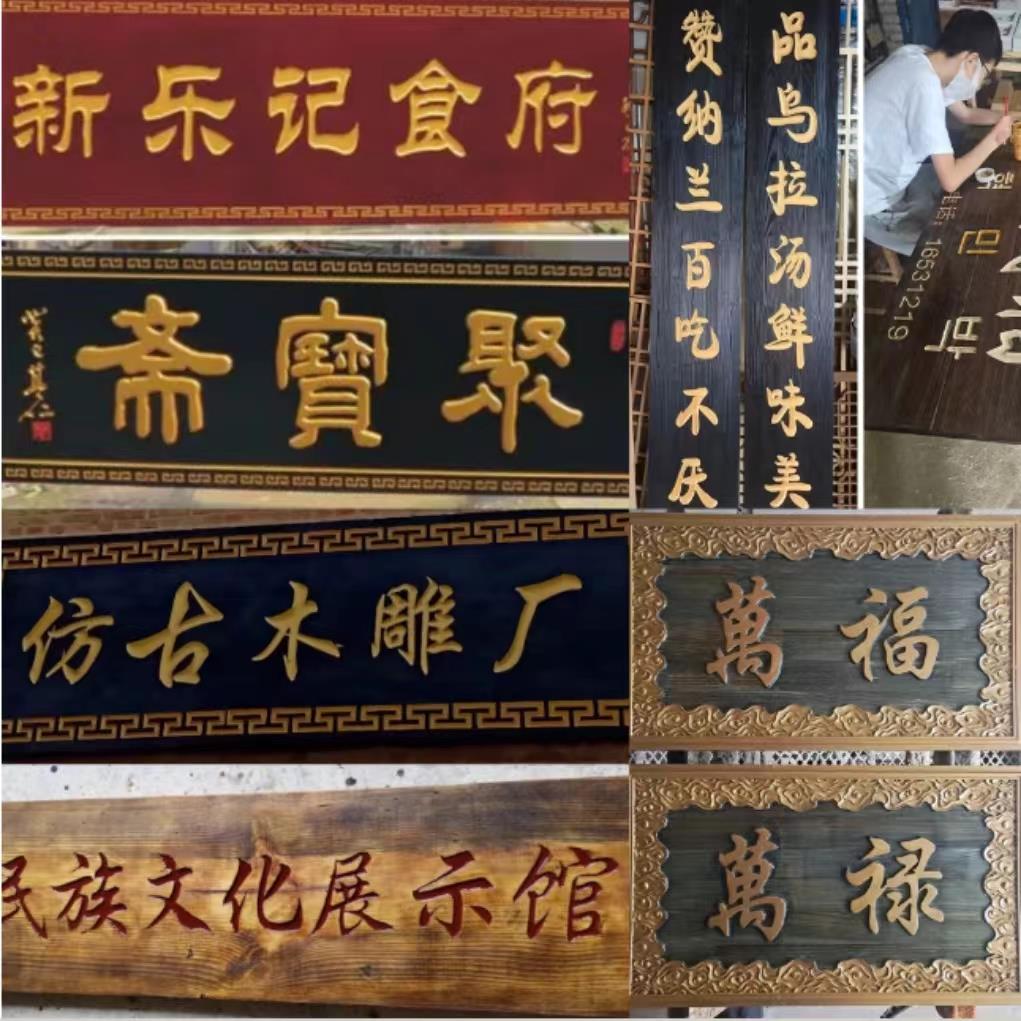 新乐记食府
聚寶斋
仿古木雕厂
民族文化展示馆
品乌拉汤鲜味美
赞纳兰百吃不厌
电话：16531219
萬福
萬禄